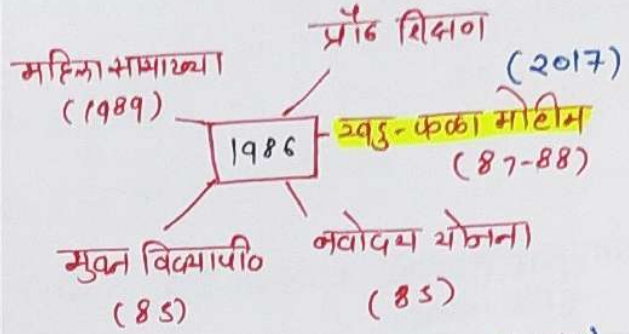 प्रौढ शिक्षण
महिला सामाख्या
(1989)
(2017)
1986
खडु-फळा मोहीम
(87-88)
मुक्त विद्यापीठ
(85)
नवोदय योजना
(85)